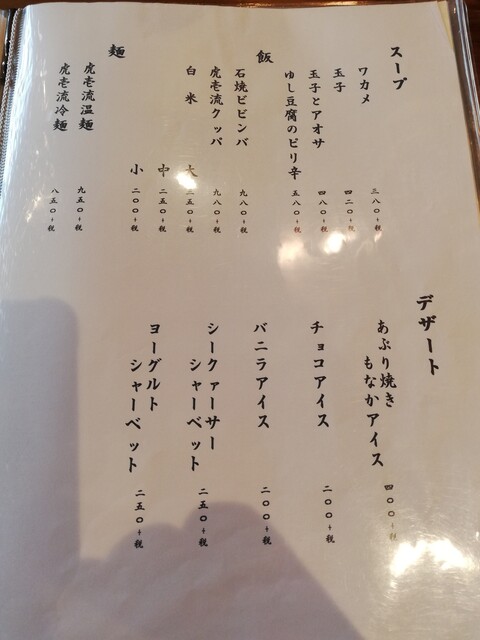 スープ
ワカメ 三八〇+税
玉子 四二〇+税
玉子とアオサ 四八〇+税
ゆし豆腐のピリ辛 五八〇+税
飯
石焼ビビンバ 九八〇+税
虎壱流クッパ 九八〇+税
白米 大 三五〇+税
中 二五〇+税
小 二〇〇+税
麺
虎壱流温麺 九五〇+税
虎壱流冷麺 八五〇+税
デザート
あぶり焼き
もなかアイス 四〇〇+税
チョコアイス 二〇〇+税
バニラアイス 二〇〇+税
シークァーサー
シャーベット 二五〇+税
ヨーグルト
シャーベット 二五〇+税